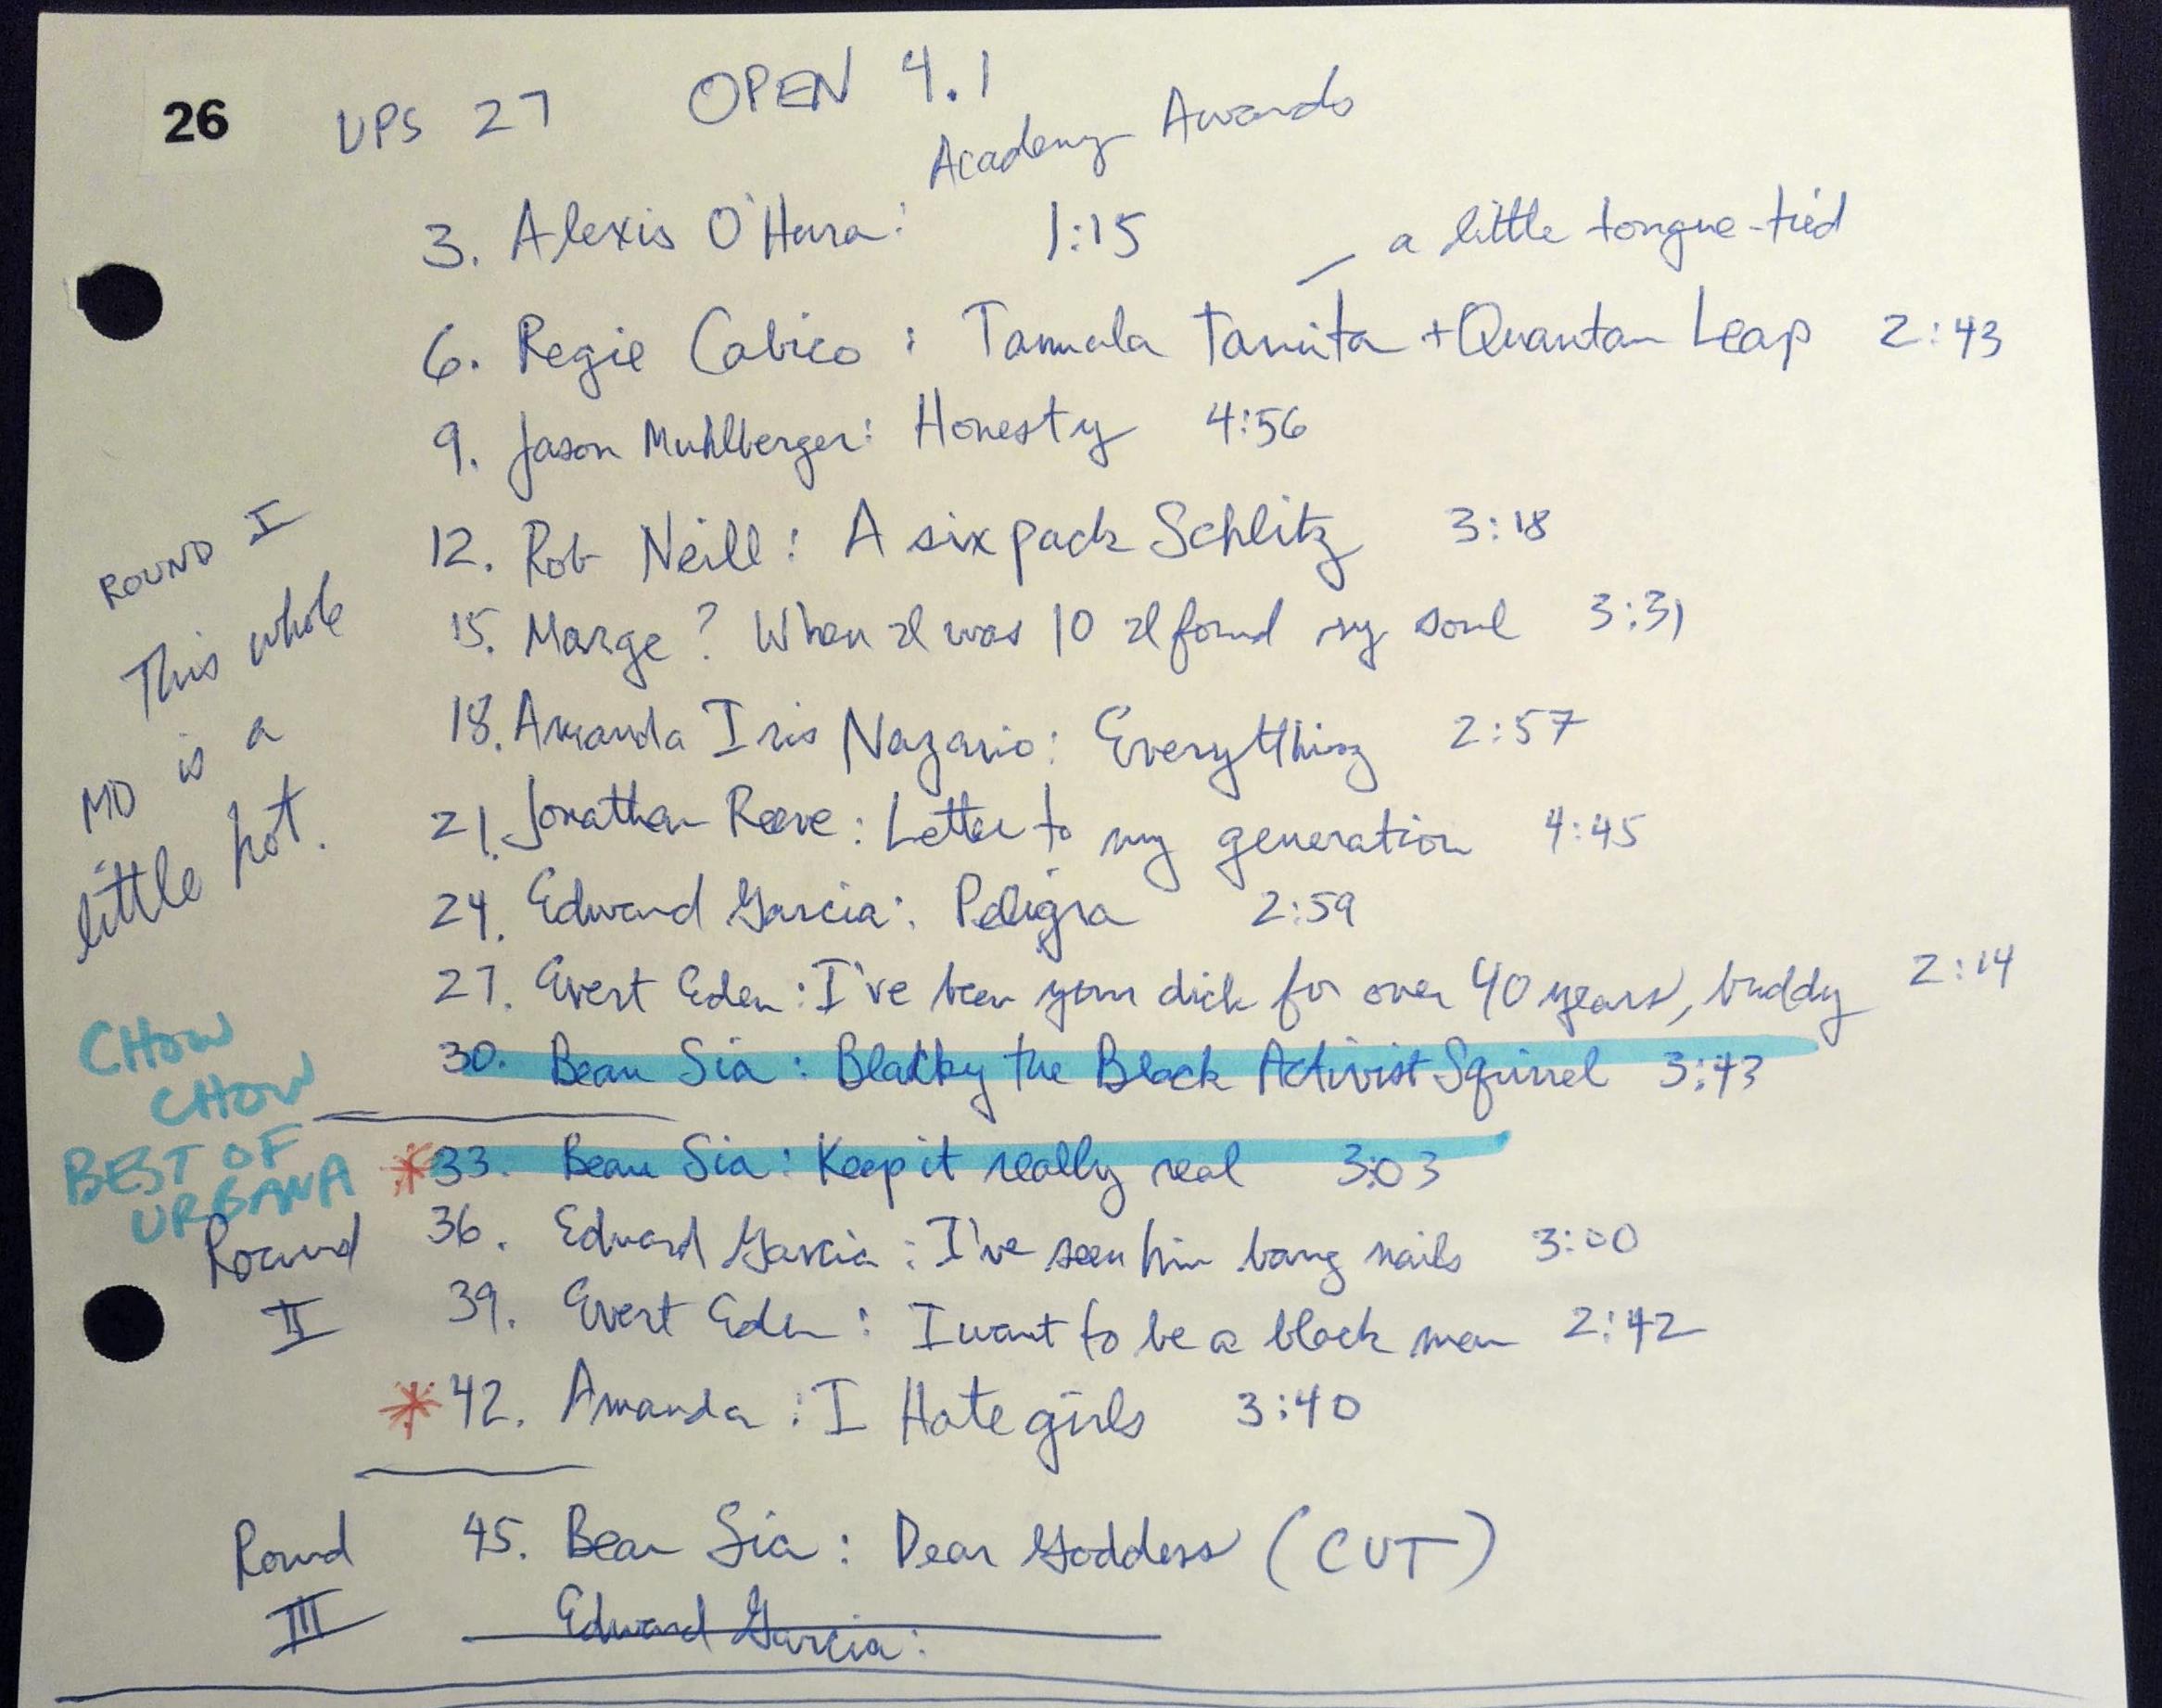 26 UPS 27 OPEN 4.1
Academy Awards
3. Alexis O'Hara: 1:15
a little tongue-tied
6. Regie Cabico: Tamala Tamita + Quantam Leap 2:43
9. Jason Muhlberger: Honesty 4:56
12. Rob Neill: A six pack Schlitz 3:18
15. Marge? When I was 10 I found my soul 3:31
18. Amanda Iris Nazario: Everything 2:57
21. Jonathan Reeve: Letter to my generation 4:45
24. Edward Garcia: Peligra 2:59
27. Evert Eden: I've been your dick for over 40 years, buddy 2:14
30. Beau Sia: Blackby the Black Activist Squirrel 3:43
*33. Beau Sia: Keep it really real 3:03
36. Edward Garcia: I've seen him bang nails 3:00
39. Evert Eden: I want to be a black man 2:42
*42. Amanda: I Hate girls 3:40
45. Beau Sia: Dear Goddess (CUT)
Edward Garcia:
ROUND I
This whole
MD is a
little hot.
CHOW
CHOW
BEST OF
URBANA
Round
II
Round
III